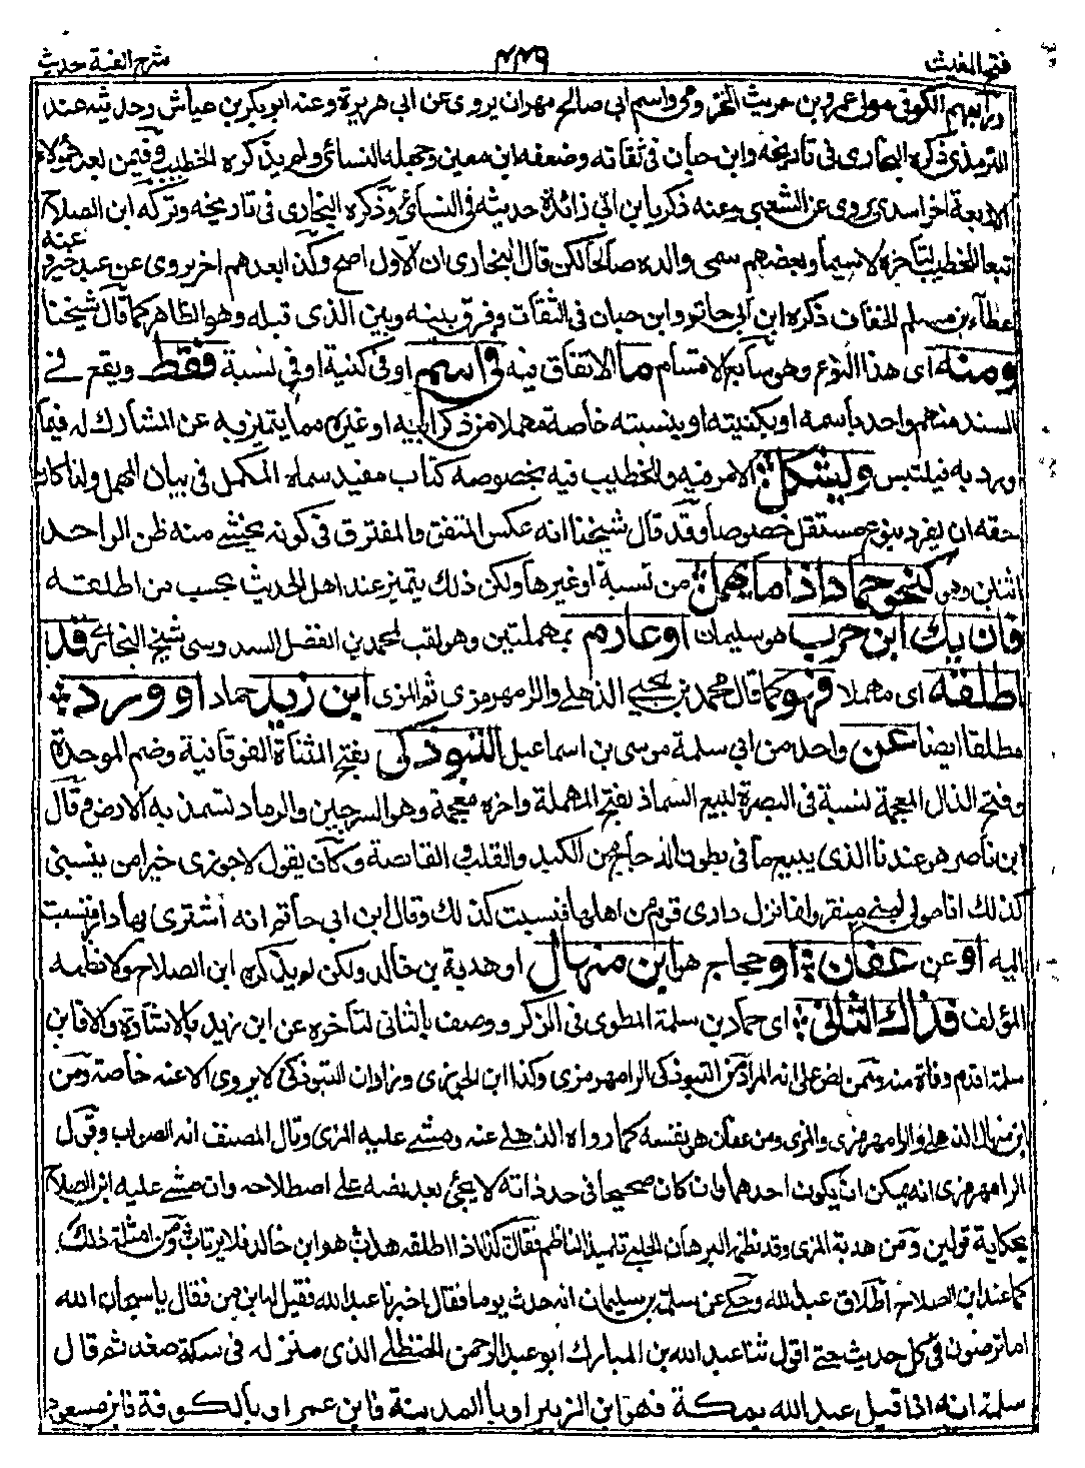 فتح المغيث ٤٤٩ شرح الفية حديث
ابراهيم الكوفي مولى عمرو بن حريث المخزومي واسم ابي صالح مهران يروى عن ابي هريرة وعنه ابو بكر بن عياش وحديثه عند
الترمذي ذكره البخاري في تاريخه وابن حبان في ثقاته وضعفه ابن معين وجهله النسائي ولم يذكره الخطيب وفيمن بعد هؤلاء
الاربعة اخر اسدي يروى عن الشعبي وعنه زكريا بن ابي زائدة حديثه في النسائي وذكره البخاري في تاريخه وتركه ابن الصلاح
تبعا للخطيب لتاخره لاسيما وبعضهم سمى والده صالحا لكن قال البخاري ان الاول اصح وكذا بعدهم اخر يروى عن عبد خير وعنه
عطاء بن مسلم الخفاف ذكره ابن ابي حاتم وابن حبان في الثقات وفرق بينه وبين الذى قبله وهو الظاهر كما قال شيخنا
ومنه اى هذا النوع وهو سابع الاقسام ما الاتفاق فيه في اسم او في كنية او في نسبة فقط ويقع في
السند منهم واحد باسمه او بكنيته او بنسبته خاصة مهملا من ذكر ابيه او غيره مما يتميز به عن المشارك له فيما
ورد به فيلتبس ويشكل الامر فيه وللخطيب فيه بخصوصه كتاب مفيد سماه المكمل في بيان المهمل ولذا كان
حقه ان يفرد بنوع مستقل خصوصا وقد قال شيخنا انه عكس المتفق والمفترق في كونه يخشى منه ظن الواحد
اثنان وهو كنحو حماد اذا ما يهمل من نسبة او غيرها ولكن ذلك يتميز عند اهل الحديث بحسب من اطلقه
فان يك ابن حرب هو سليمان او عارم بمهملتين وهو لقب لمحمد بن الفضل السدوسى شيخ البخارى قد
اطلقه اى مهملا فهو كما قال محمد بن يحيى الذهلى والرامهرمزى ثم المزى ابن زيد حماد او ورد
مطلقا ايضا عن واحد من ابي سلمة موسى بن اسماعيل التبوذكى بفتح المثناة الفوقانية وضم الموحدة
وفتح الذال المعجمة نسبة في البصرة لبيع السماذ بفتح المهملة واخره معجمة وهو السرجين والرماد تسمذ به الارض وقال
ابن ناصر هو عندنا الذى يبيع ما في بطون الدجاج من الكبد والقلب والقانصة وكان يقول لا جوزى خيرا من ينسبني
كذلك انا مولى لبني منقر وانما نزل دارى قوم من اهلها فنسبت كذلك وقال ابن ابي حاتم انه اشترى بها دارا فنسبت
اليه او عن عفان او حجاج هو ابن منهال او هدبة بن خالد ولكن لم يذكره ابن الصلاح ولا نظمه
المؤلف فذاك الثاني اى حماد بن سلمة المطوى في الذكر ووصف بالثانى لتأخره عن ابن زيد بالاشارة والا فابن
سلمة اقدم وفاة منه وممن نص على انه المراد من التبوذكى الرامهرمزى وكذا ابن الجوزى وزاد ان التبوذكى لا يروى الا عنه خاصة ومن
ابن منهال الذهلى والرامهرمزى والمزى ومن عفان هو بنفسه كما رواه الذهلى عنه ومشى عليه المزى وقال المصنف انه الصواب وقول
الرامهرمزى انه يمكن ان يكون احدهما وان كان صحيحا في حد ذاته لا يجئ بعد نصه على اصطلاحه وان مشى عليه ابن الصلاح
بحكاية قولين ومن هدبة المزى وقد نظم البرهان الحلبى تلميذ الناظم فقال كذا اذا اطلقه هداب هو ابن خالد فلا يرتاب ومن امثلة ذلك
كما عند ابن الصلاح اطلاق عبد الله وحكى عن سلمة بن سليمان انه حدث يوما فقال اخبرنا عبد الله فقيل له ابن من فقال يا سبحان الله
اما ترضون في كل حديث حتى اقول ثنا عبد الله بن المبارك ابو عبد الرحمن الحنظلى الذى منزله في سكة صغد ثم قال
سلمة انه اذا قيل عبد الله بمكة فهو ابن الزبير او بالمدينة فابن عمر او بالكوفة فابن مسعود